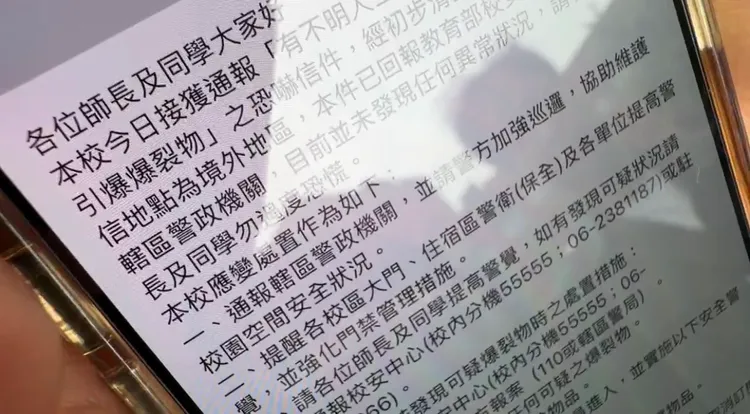 各位師長及同學大家好
本校今日接獲通報「有不明人士
引爆爆裂物」之恐嚇信件，經初步清
信地點為境外地區，本件已回報教育部校安
轄區警政機關，目前並未發現任何異常狀況，請
長及同學勿過度恐慌。
本校應變處置作為如下：
一、通報轄區警政機關，並請警方加強巡邏，協助維護
校園空間安全狀況。
二、提醒各校區大門、住宿區警衛(保全)及各單位提高警
覺，並強化門禁管理措施。
請各位師長及同學提高警覺，如有發現可疑狀況請
報校安中心(校內分機55555；06-2381187)或駐
66)。
發現可疑爆裂物時之處置措施：
安中心(校內分機55555；06-
報案（110或轄區警局）。
任何可疑之爆裂物。
進入，並實施以下安全警
物品。